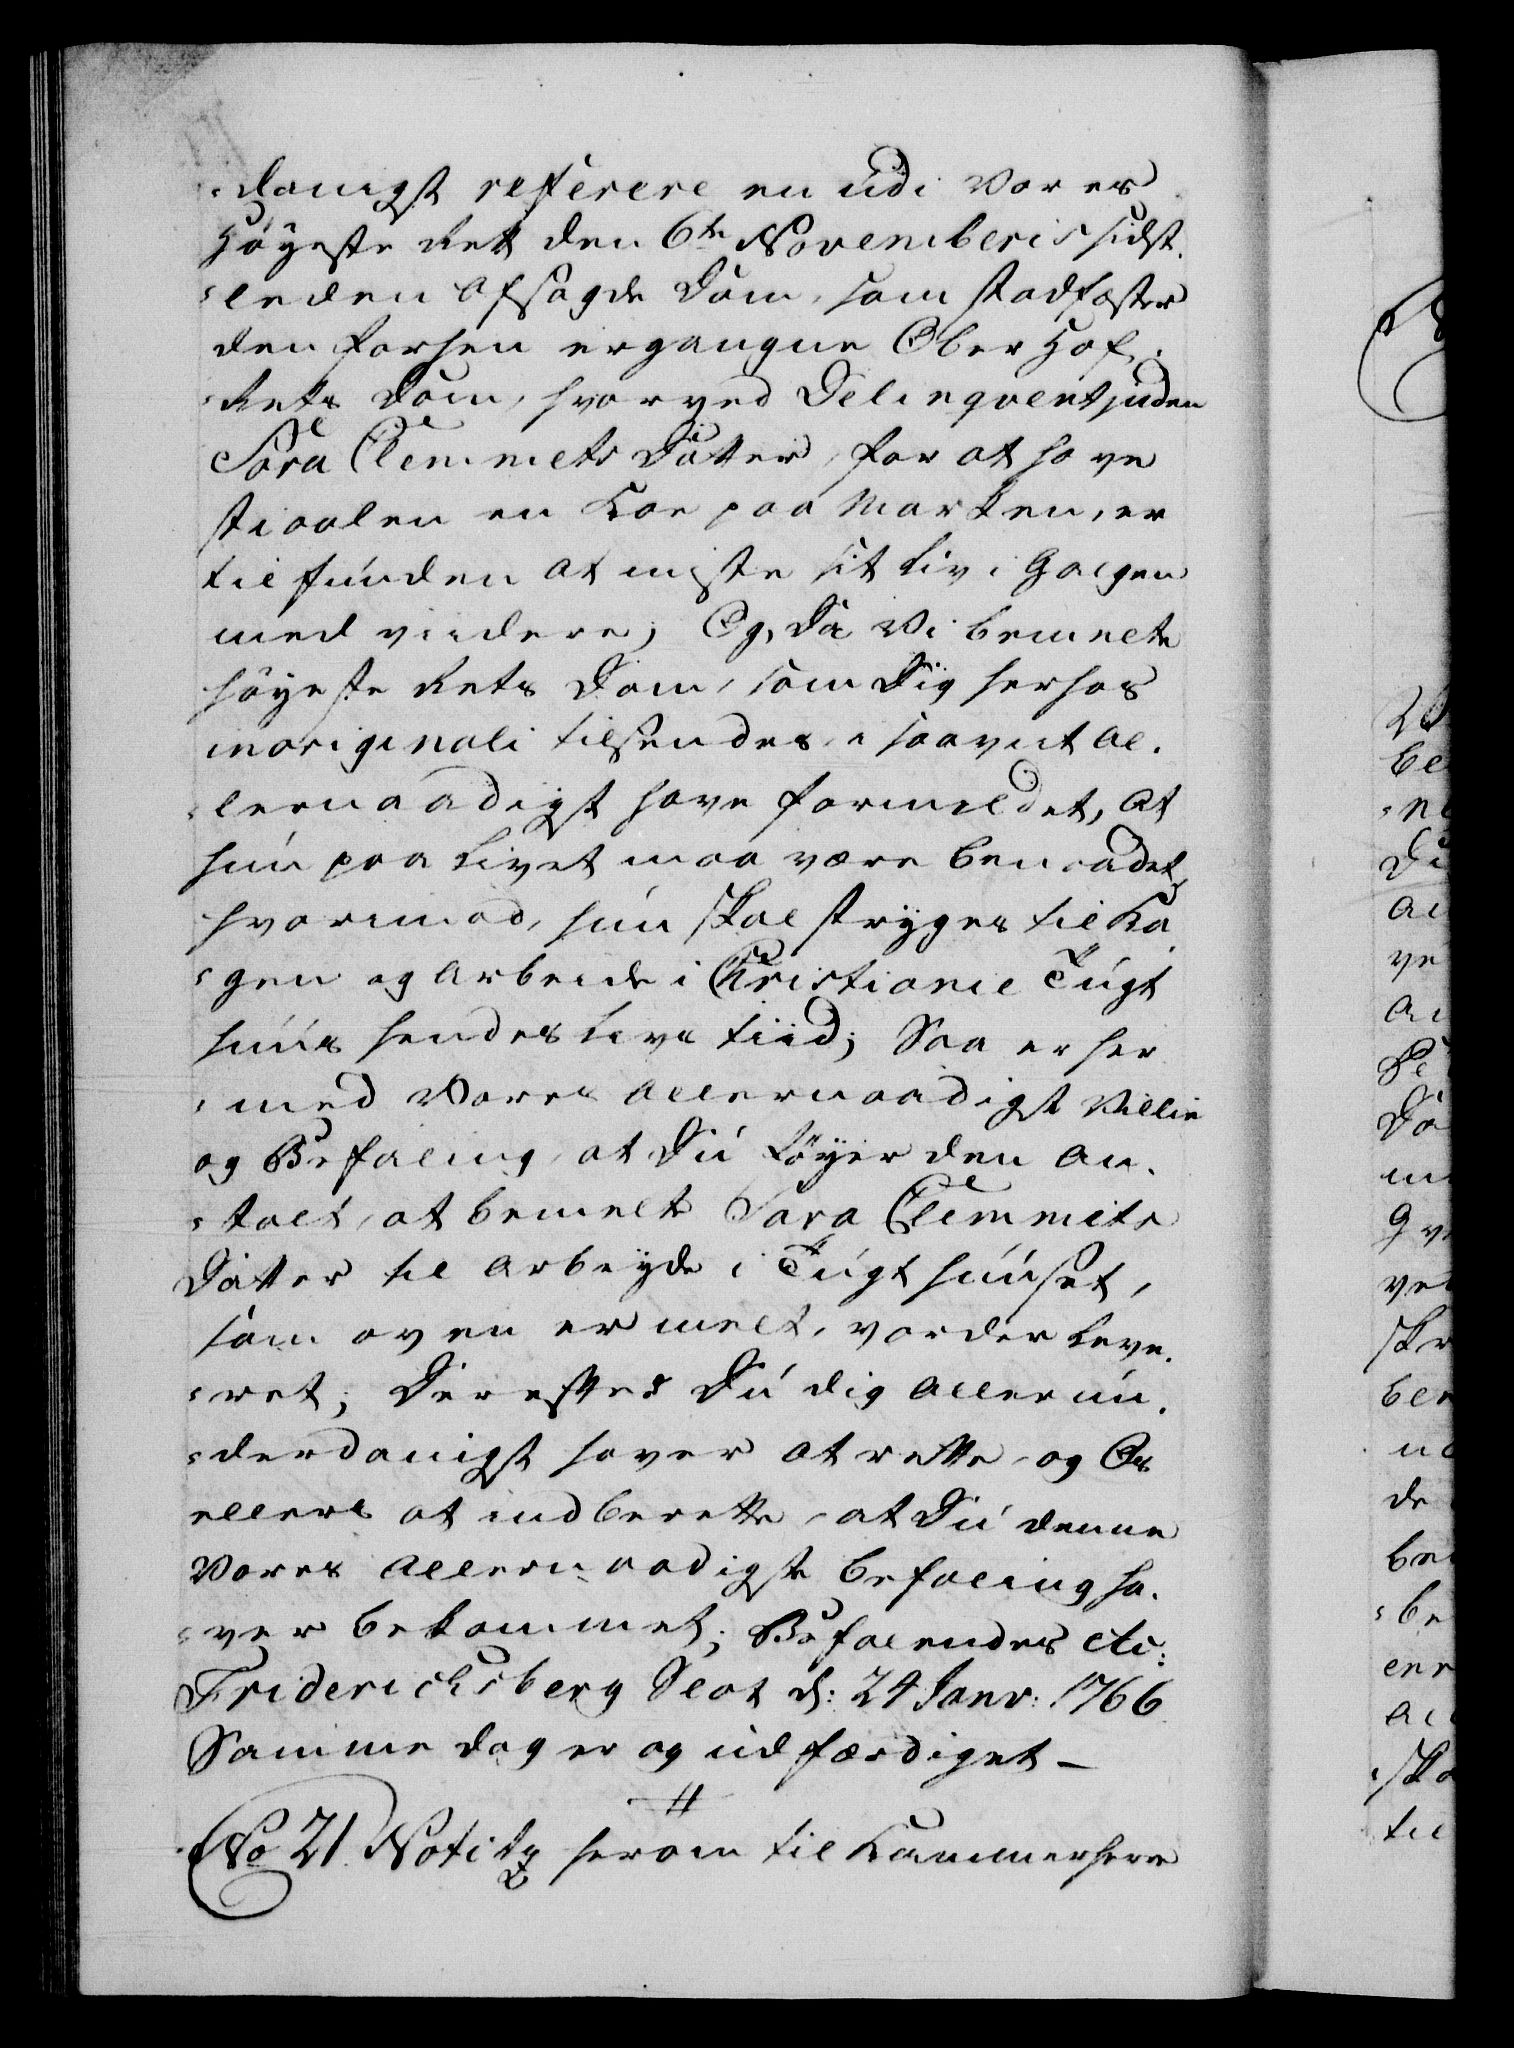 -danigst refferere en udi Vores
Höyeste Ret den 6te Novemberis sidst-
-leden afsagde Dom, som stadfæster
den forhen ergangne Ober Hof-
-Rets Dom, hvorved Delinqventinden
Sara Clemmets Datter, for at have
stiaalen en Koe paa Marken, er
tilfunden at miste sit Liv i Galgen
med viidere; Og, da Vi bemelte
Höyeste Rets Dom, som Dig herhos
in originali tilsendes, i saavit al-
-lernaadigst have formildet, at
hun paa Livet maa være benaadet,
hvorimod, hun skal stryges til Ka-
-gen og arbeide i Christianie Tugt
huus hendes Livs tiid; Saa er her
-med Vores allernaadigst Villie
og Befaling, at Du föyer den an-
-stalt, at bemelte Sara Clemmets
Datter til Arbeyde i Tugthuuset,
som oven er melt, vorder leve-
-ret; Derefter Du dig allerun-
-derdanigst haver at rette, og Os
ellers at indberette, at Du denne
Vores allernaadigste befaling ha-
-ver bekommet; Befalendes etc:
Friderichsberg Slot d: 24 Janv: 1766
Samme dag er og udfærdiget –
No 21. Notitz herom til Kammerherre